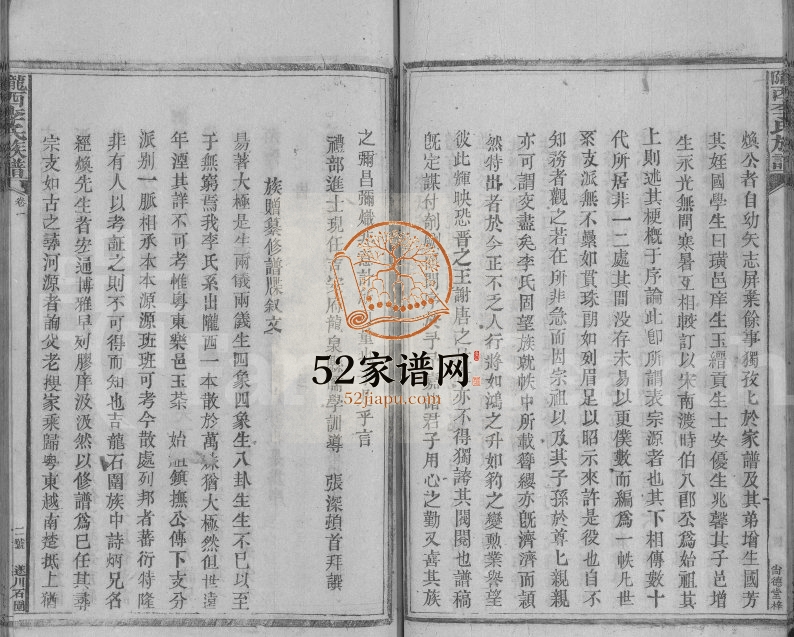 隴西李氏族譜
煥公者自幼矢志屏棄餘事獨孜孜於家譜及其弟增生國芳
其姪國學生曰璜邑庠生玉縉貢生士安優生兆馨其子邑增
生永光無間寒暑互相較訂以宋南渡時伯八郎公爲始祖其
上則述其梗概于序論此卽所謂表宗源者也其下相傳數十
代所居非一二處其間没存未易以更僕數而編爲一帙凡世
系支派無不纍如貫珠朗如列眉足以昭示來許是役也自不
知務者觀之若在所非急而因宗祖以及其子孫於尊尊親親
亦可謂交盡矣李氏固望族就帙中所載簪纓亦旣濟濟而頴
然特出者於今正不乏人行將如鴻之升如豹之變勳業譽望
彼此輝映恐晋之王謝唐之 亦不得獨誇其閥閱也譜稿
旣定謀付剞劂 諸君子用心之勤又喜其族
尚德堂梓
之彌昌彌熾 乎言
禮部進士現任 儒學訓導 張深頓首拜譔
族贈纂修譜牒叙文
易著大極是生兩儀兩義生四象四象生八卦生生不已以至
于無窮焉我李氏系出隴西一本散於萬殊猶大極然但世遠
年湮其詳不可考惟粤東樂邑玉茶 始祖鎮撫公傳下支分
派別一脈相承本本源源班班可考今散處列邦者蕃衍特隆
非有人以考証之則不可得而知也吉龍石圍族中詩炳兄名
經煥先生者安通博雅早列膠庠汲汲然以修譜爲已任其尋
宗支如古之尋河源者詢父老搜家乘歸粤東越南楚抵上猶
隴西李氏族譜
卷一
二號
遂川石圍
52家谱网
52jiapu.com